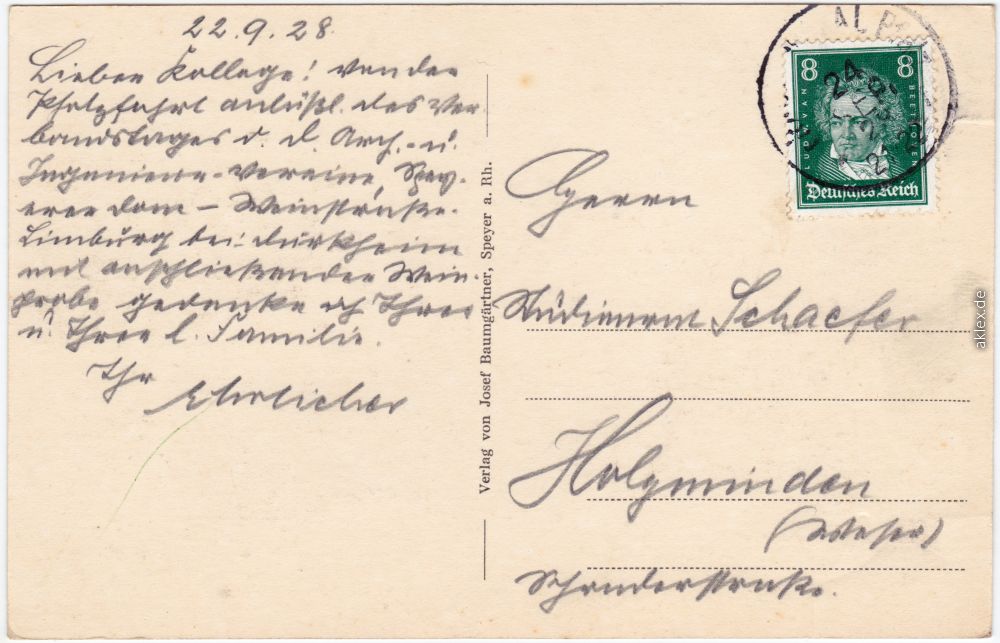 22.9.28.
Lieber Kollege! Von der
Pfalzfahrt anläßl. des Ver
bandstages d. d. Arch.- u.
Ingenieur-Vereine, Spey-
erer Dom – Weinstraße.
Limburg bei Dürkheim
mit anschließender Wein-
probe gedenke ich Ihrer
u. Ihrer l. Familie.
Ihr
Verlag von Josef Baumgärtner, Speyer a. Rh.
8 8
LUDW. VAN BEETHOVEN
Deutsches Reich
Herrn
Studienrat Schaefer
Holzminden
(Weser)
aklex.de